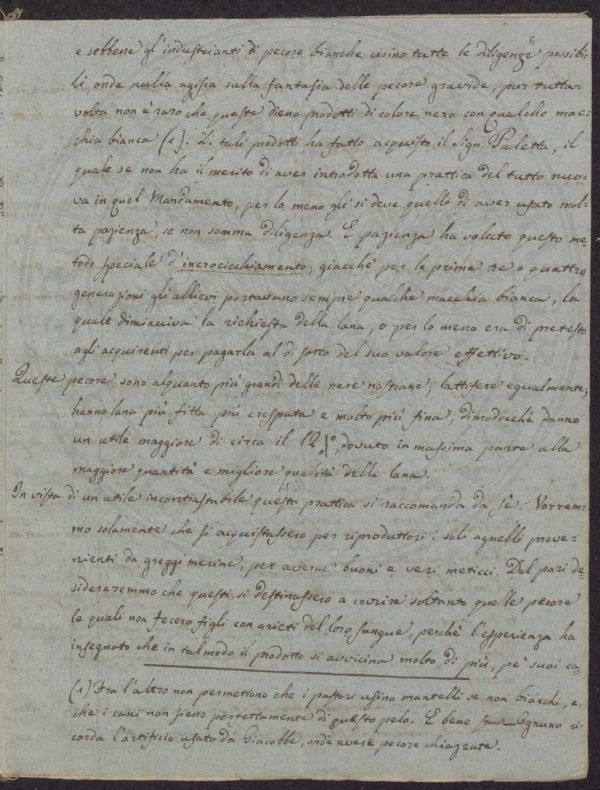 6
e sebbene gl'industrianti di pecore bianche usino tutte le diligenze possibi-
li, onde nulla agisca sulla fantasia delle pecore gravide, pur tutta-
volta non è raro che queste dieno prodotti di colore nero con qualche mac-
chia bianca (1). Di tali prodotti ha fatto acquisto il Sign. Paletta, il
quale se non ha il merito di aver introdotta una prattica del tutto nuo-
va in quel Mandamento, per lo meno gli si deve quello di aver usato mol-
ta pazienza, se non somma diligenza. E pazienza ha voluto questo me-
todo speciale d'incrocicchiamento, giacchè per le prime tre o quattro
generazioni gli allievi portavano sempre qualche macchia bianca, la
quale diminuiva la richiesta della lana, o per lo meno era di pretesto
agli acquirenti per pagarla al di sotto del suo valore effettivo.
Queste pecore sono alquanto più grandi delle nere nostrane; lattifere egualmente;
hanno lana più fitta più crespata e molto più fina, dimodocchè danno
un utile maggiore di circa il 12 %, dovuto in massima parte alla
maggiore quantità e migliore qualità della lana.
In vista di un utile incontrastabile questa prattica si raccomanda da sè. Vorrem-
mo solamente che si acquistassero per riproduttori i soli agnelli prove-
nienti da greggi merine, per averne buoni e veri meticci. Del pari de-
sidereremmo che questi si destinassero a covrire soltanto quelle pecore
le quali non fecero figli con arieti del loro sangue, perchè l'esperienza ha
insegnato che in tal modo il prodotto si avvicina molto di più, pe' suoi ca-
(1) Fra l'altro non permettono che i pastori usino mantelli se non bianchi, e
che i cani non sieno perfettamente di questo pelo. E bene ognuno ri-
corda l'artificio usato da Giacobbe, onde avere pecore chiazzate.